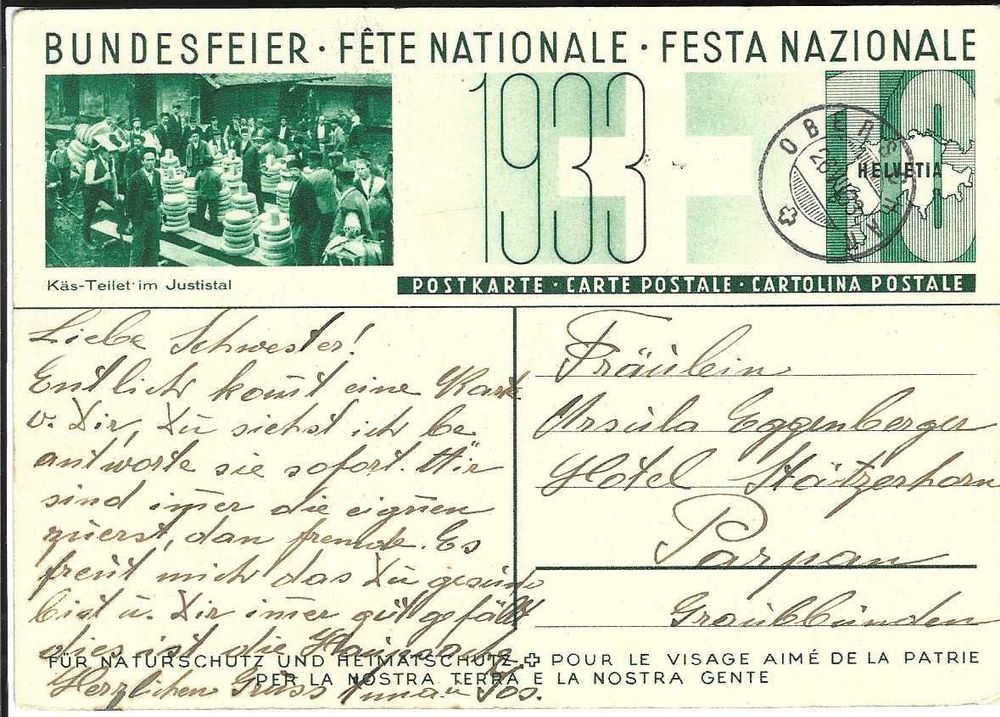 BUNDESFEIER · FÊTE NATIONALE · FESTA NAZIONALE
1933
HELVETIA
10
Käs-Teilet im Justistal
POSTKARTE · CARTE POSTALE · CARTOLINA POSTALE
Liebe Schwester!
Entlich kom̄t eine Karte
v. Dir, Du siehst ich be
antworte sie sofort. Mir
sind im̄er die eignen
zuerst, dan fremde. Es
freut mich das Du gesund
bist u. Dir im̄er gut gefällt
dies ist die Hauptsache.
Herzlichen Gruss
Fräulein
Ursula Eggenberger
Hotel Stätzerhorn
Parpan
Graubbünden
FÜR NATURSCHUTZ UND HEIMATSCHUTZ POUR LE VISAGE AIMÉ DE LA PATRIE
PER LA NOSTRA TERRA E LA NOSTRA GENTE